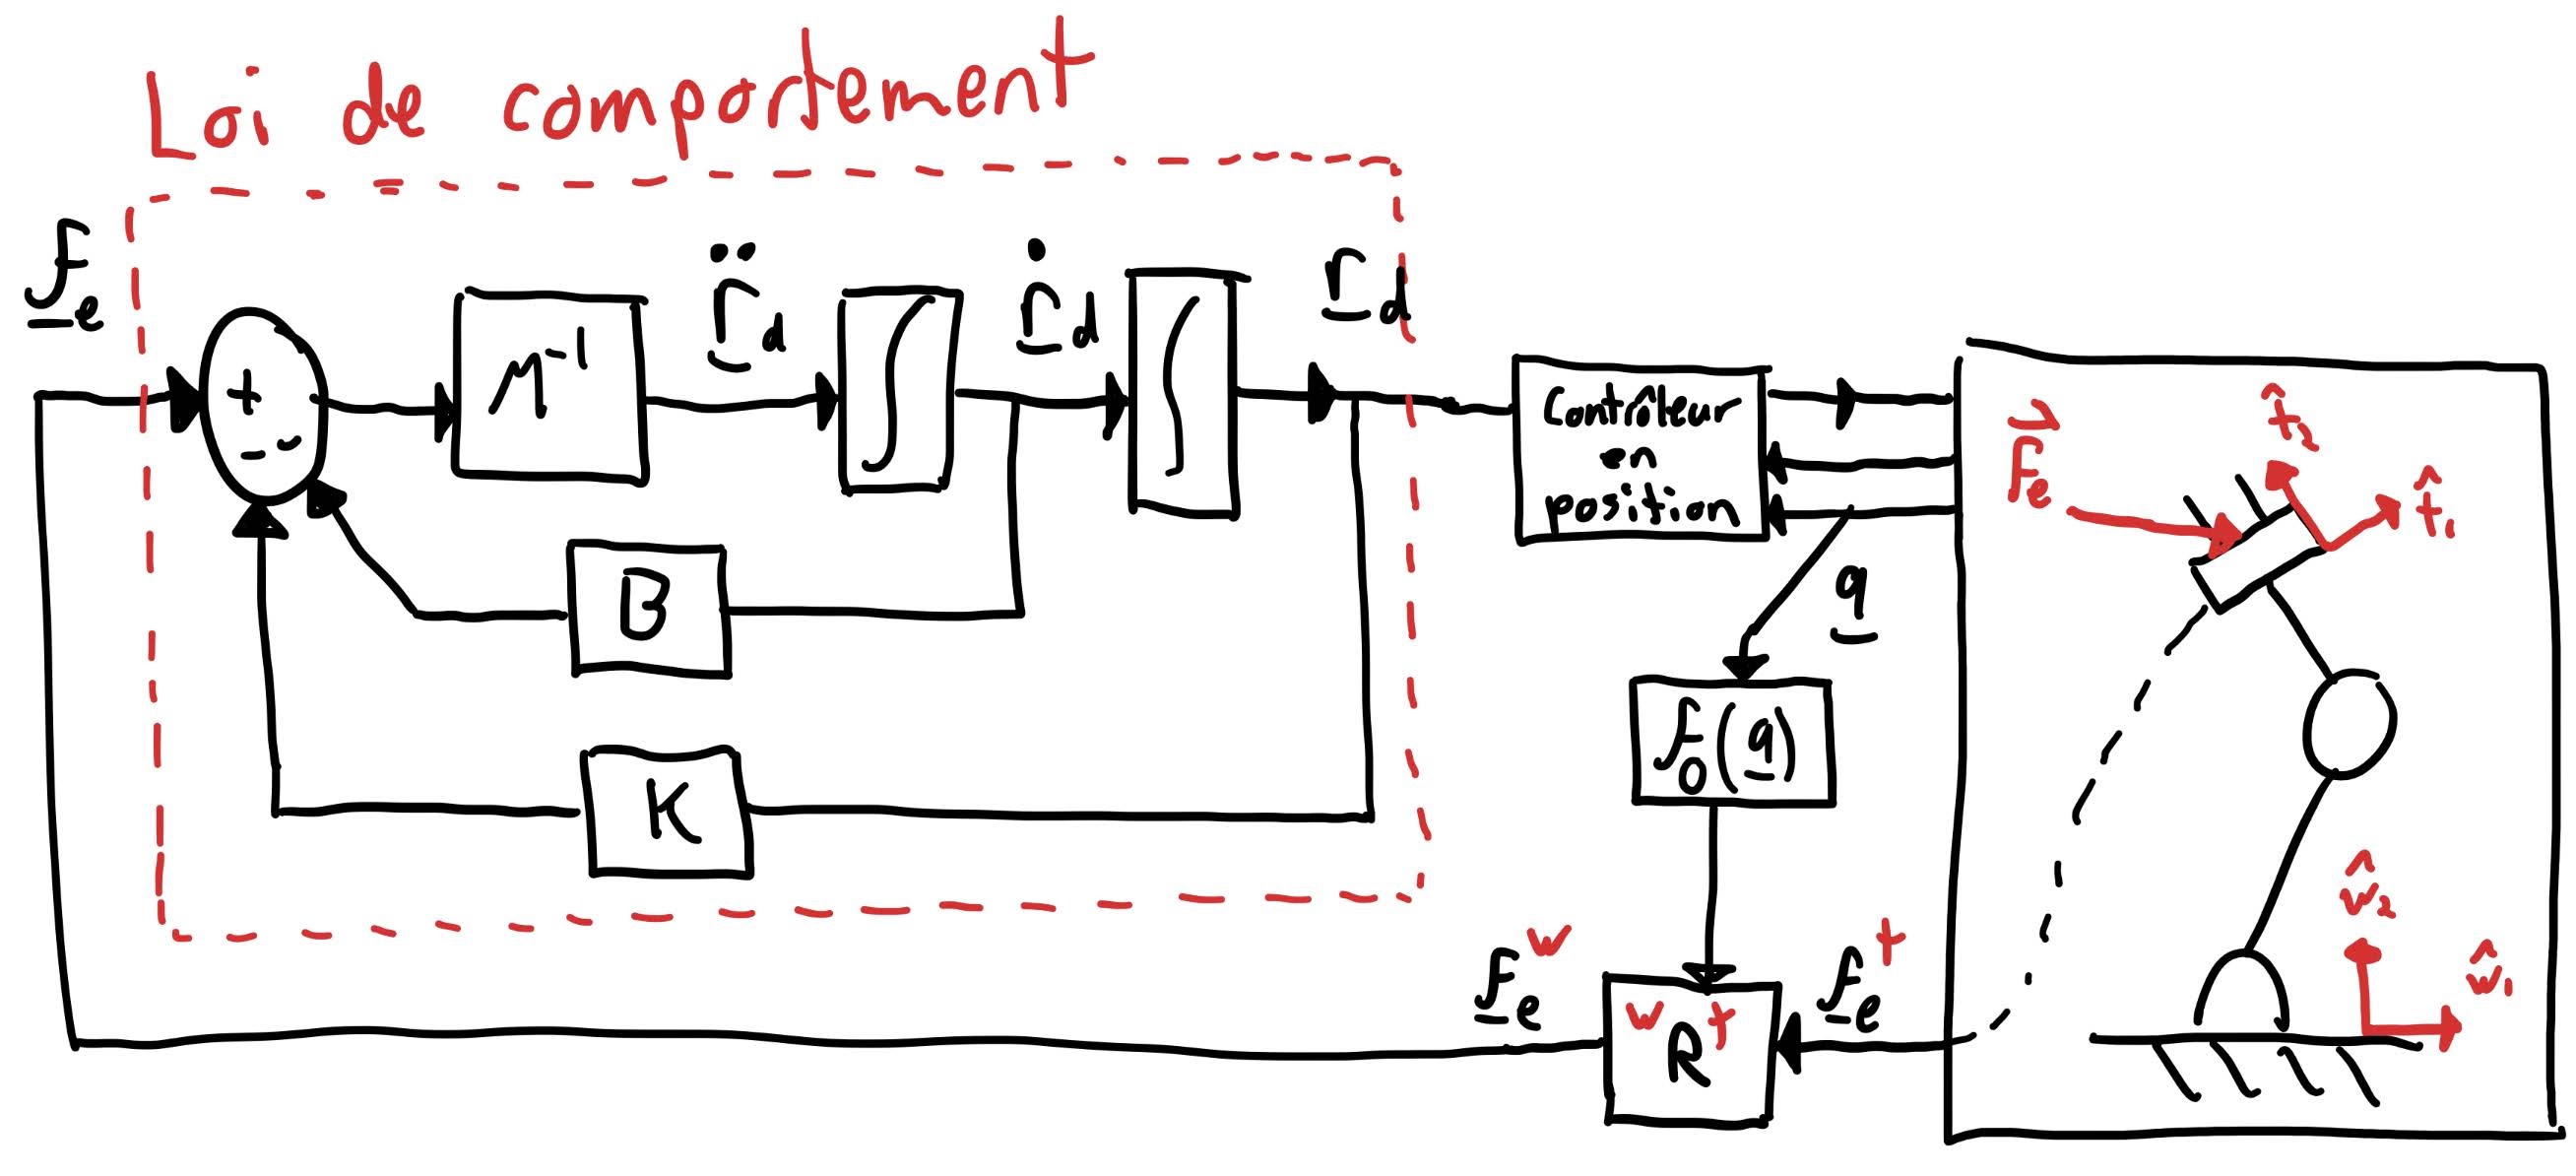 Loi de comportement
f_e
+
- -
M⁻¹
r̈_d
∫
ṙ_d
∫
r_d
B
K
Contrôleur
en
position
q
f_0(q)
f_e^w
^wR^t
f_e^t
F⃗_e
t̂_2
t̂_1
ŵ_2
ŵ_1